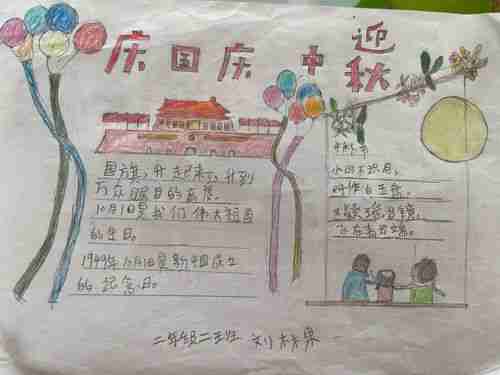 庆国庆 迎中秋
国旗,升起来了,升到
万众瞩目的高度。
10月1日是我们伟大祖国
的生日。
1949年10月1日是新中国成立
的纪念日。
中秋节
小时不识月,
呼作白玉盘。
又疑瑶台镜,
飞在青云端。
二年级二班 刘